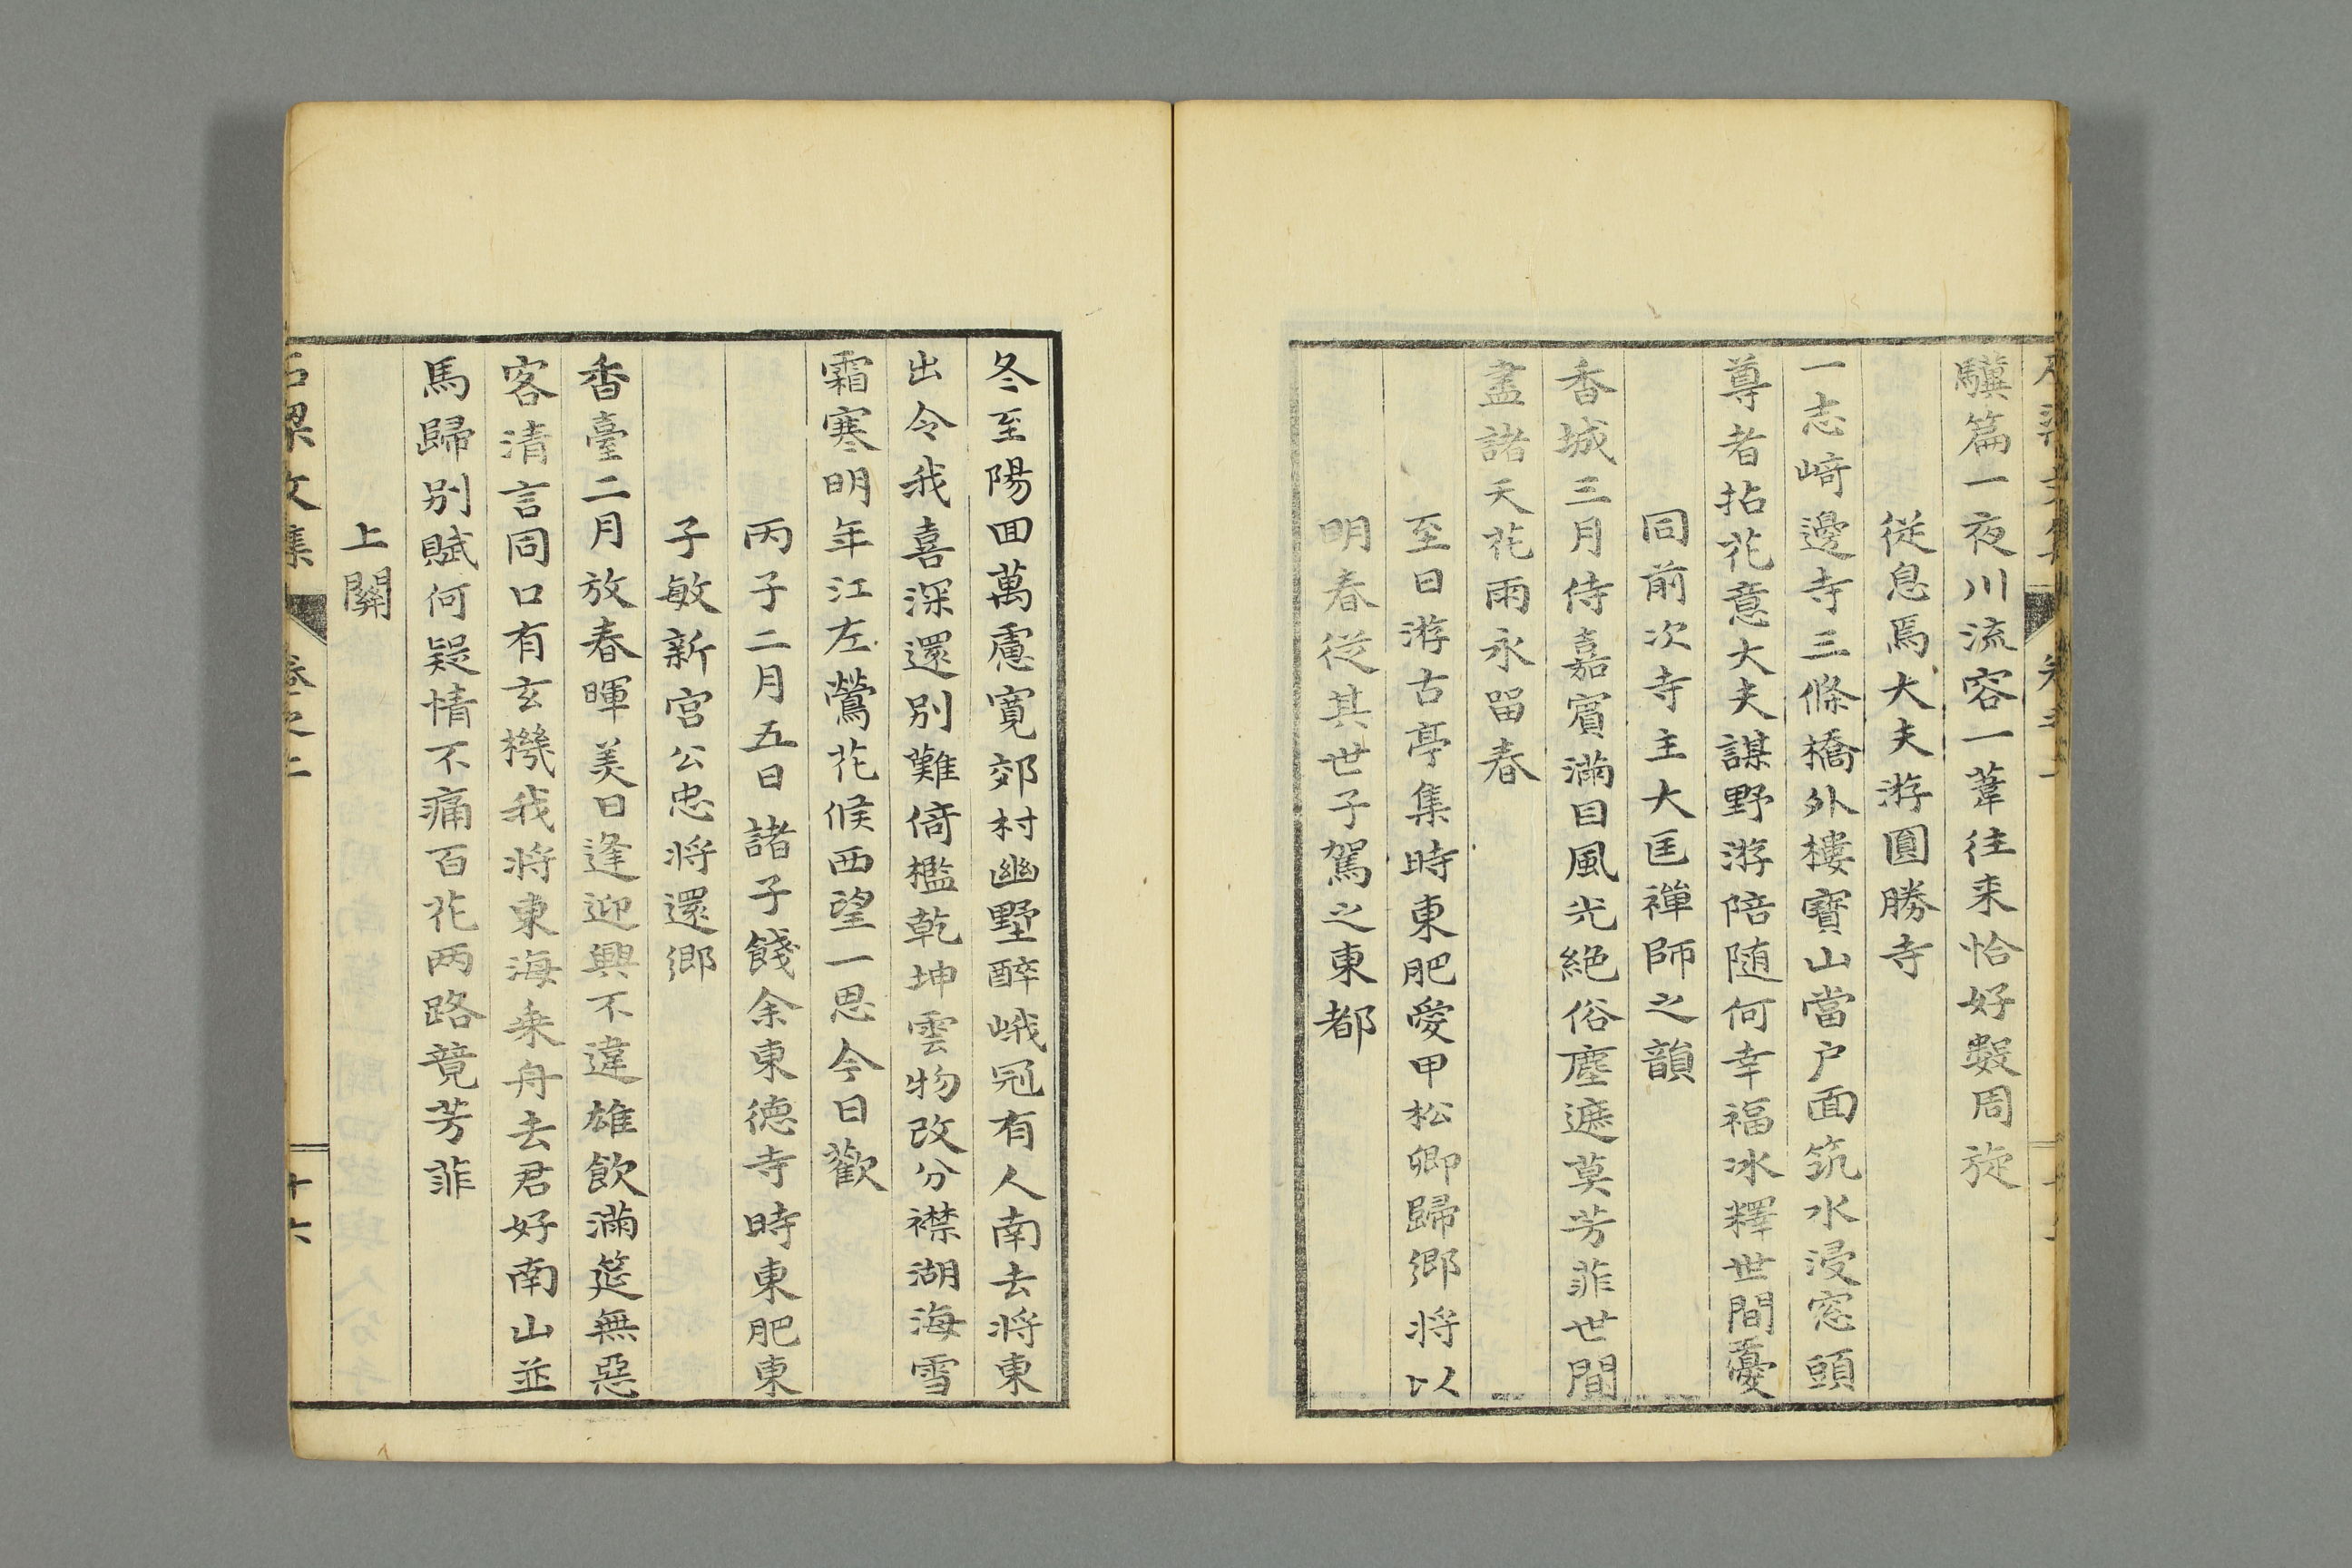 驥篇一夜川流容一葦往来恰好数周旋
従息焉大夫游圓勝寺
一志﨑邊寺三條橋外樓寳山當户面筑水浸窓頭
尊者拈花意大夫謀野游陪随何幸福冰釋世間憂
同前次寺主大匡禅師之韻
香城三月侍嘉賓滿目風光絶俗塵遮莫芳菲世間
盡諸天花雨永留春
至日游古亭集時東肥愛甲松卿歸郷将以
明春従其世子駕之東都
冬至陽囬萬慮寛郊村幽墅醉峨冠有人南去将東
出令我喜深還別難倚檻乾坤雲物改分襟湖海雪
霜寒明年江左鶯花候西望一思今日歡
丙子二月五日諸子餞余東德寺時東肥東
子敏新宮公忠将還郷
香臺二月放春暉美日逢迎興不違雄飲滿筵無惡
客清言同口有玄機我将東海乗舟去君好南山並
馬歸别賦何疑情不痛百花両路競芳菲
上關
石梁文集
卷之二
十六